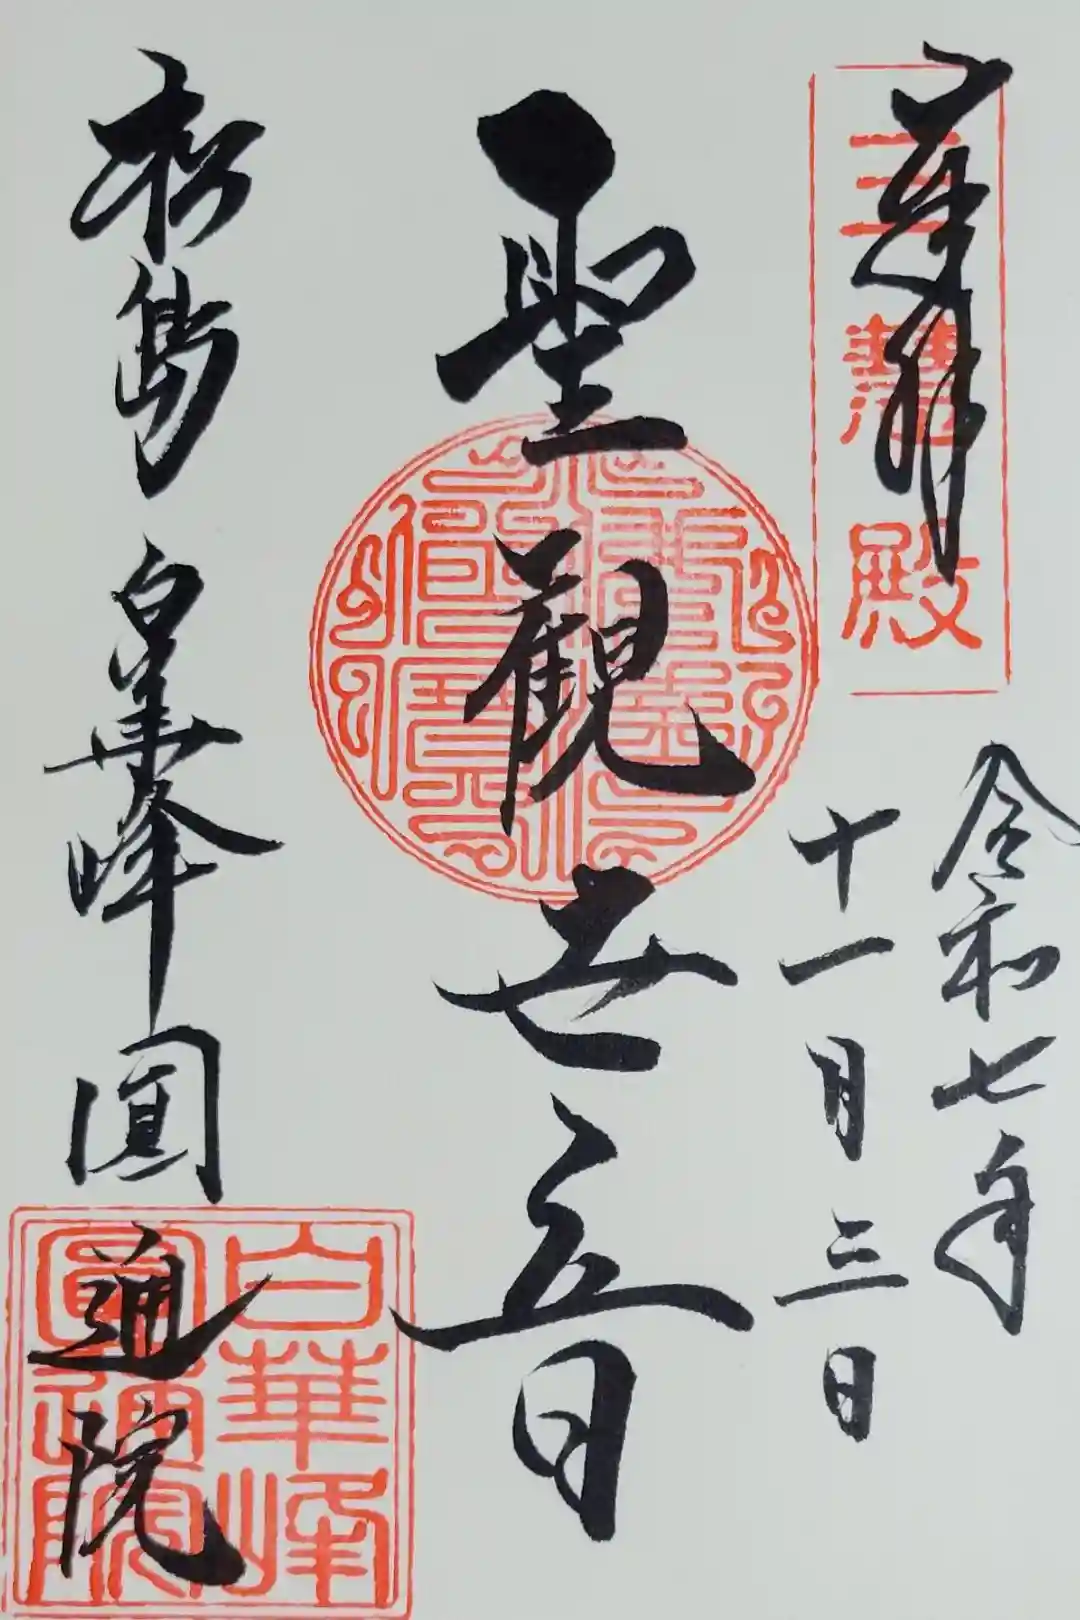 奉拝
三慧殿
令和七年
十一月三日
聖観世音
松島 白華峰圓通院
白華峰
圓通院